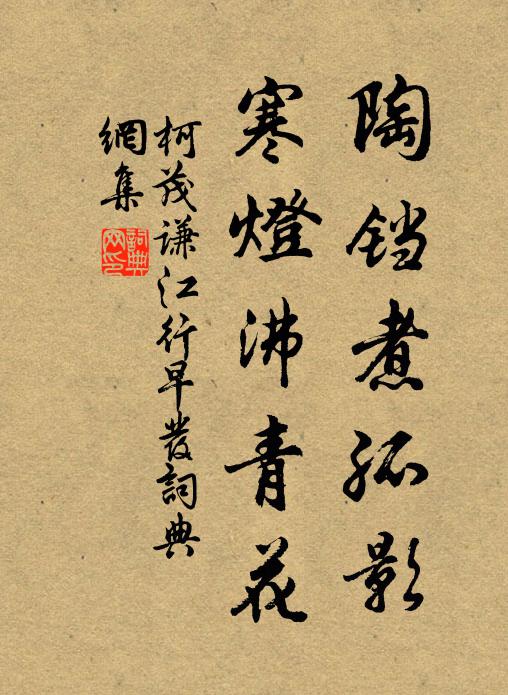 陶铛煮孤影
寒燈沸青花
柯茂谦江行早發詞典
網集
詞典網印